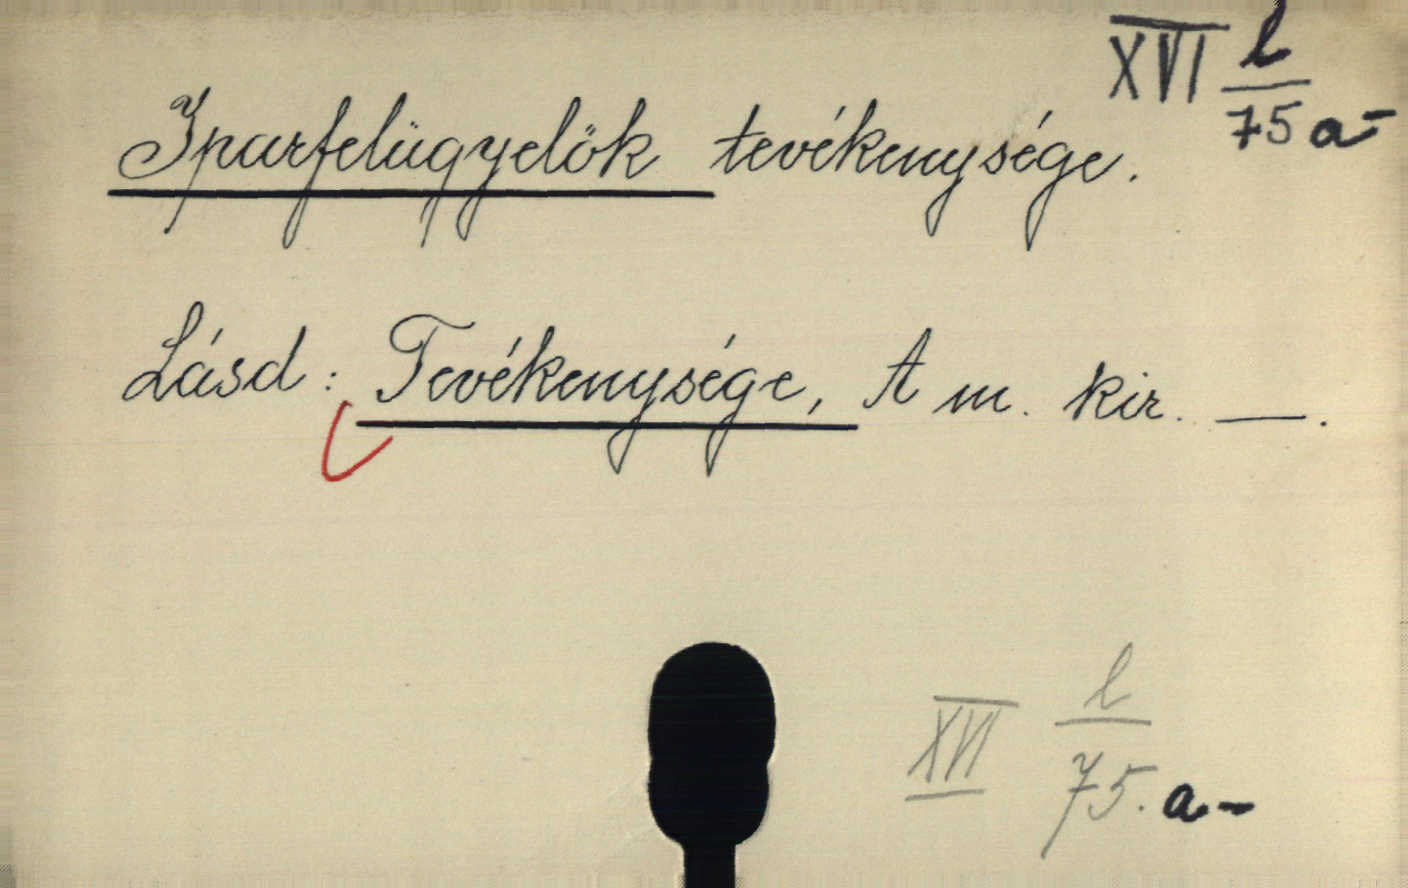 XVI l/75 a-
Iparfelügyelők tevékenysége.
Lásd: Tevékenysége, A m. kir. —.
XVI l/75. a-